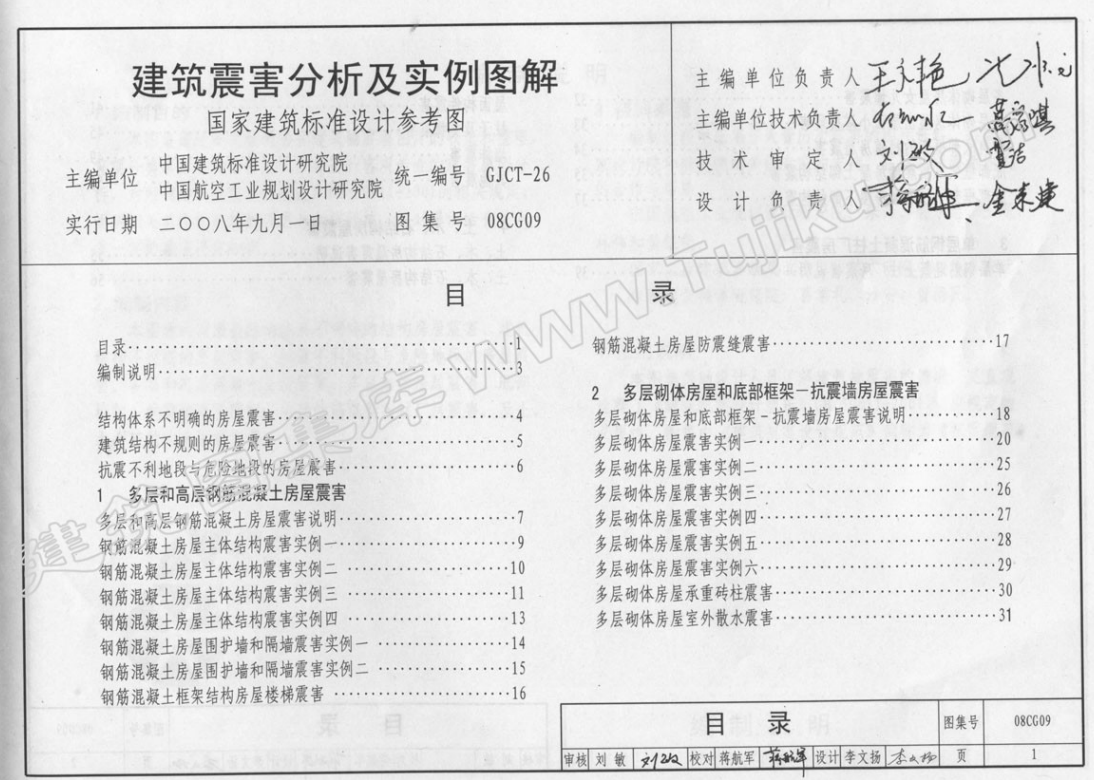 建筑震害分析及实例图解
国家建筑标准设计参考图
主编单位 中国建筑标准设计研究院
中国航空工业规划设计研究院
统一编号 GJCT-26
实行日期 二〇〇八年九月一日 图集号 08CG09
主编单位负责人
主编单位技术负责人
技术审定人
设计负责人
目 录
目录 1
编制说明 3
结构体系不明确的房屋震害 4
建筑结构不规则的房屋震害 5
抗震不利地段与危险地段的房屋震害 6
1 多层和高层钢筋混凝土房屋震害
多层和高层钢筋混凝土房屋震害说明 7
钢筋混凝土房屋主体结构震害实例一 9
钢筋混凝土房屋主体结构震害实例二 10
钢筋混凝土房屋主体结构震害实例三 11
钢筋混凝土房屋主体结构震害实例四 13
钢筋混凝土房屋围护墙和隔墙震害实例一 14
钢筋混凝土房屋围护墙和隔墙震害实例二 15
钢筋混凝土框架结构房屋楼梯震害 16
钢筋混凝土房屋防震缝震害 17
2 多层砌体房屋和底部框架－抗震墙房屋震害
多层砌体房屋和底部框架－抗震墙房屋震害说明 18
多层砌体房屋震害实例一 20
多层砌体房屋震害实例二 25
多层砌体房屋震害实例三 26
多层砌体房屋震害实例四 27
多层砌体房屋震害实例五 28
多层砌体房屋震害实例六 29
多层砌体房屋承重砖柱震害 30
多层砌体房屋室外散水震害 31
目 录 图集号 08CG09
审核 刘敏 校对 蒋航军 设计 李文扬 页 1
建筑图集库 www.Tujiku.com